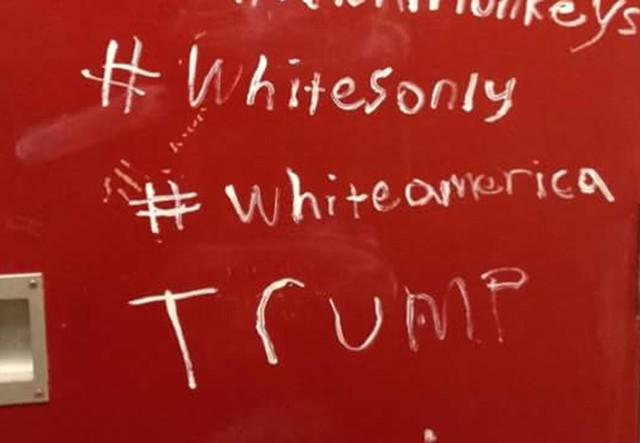 #Whitesonly
#whiteamerica
TRUMP